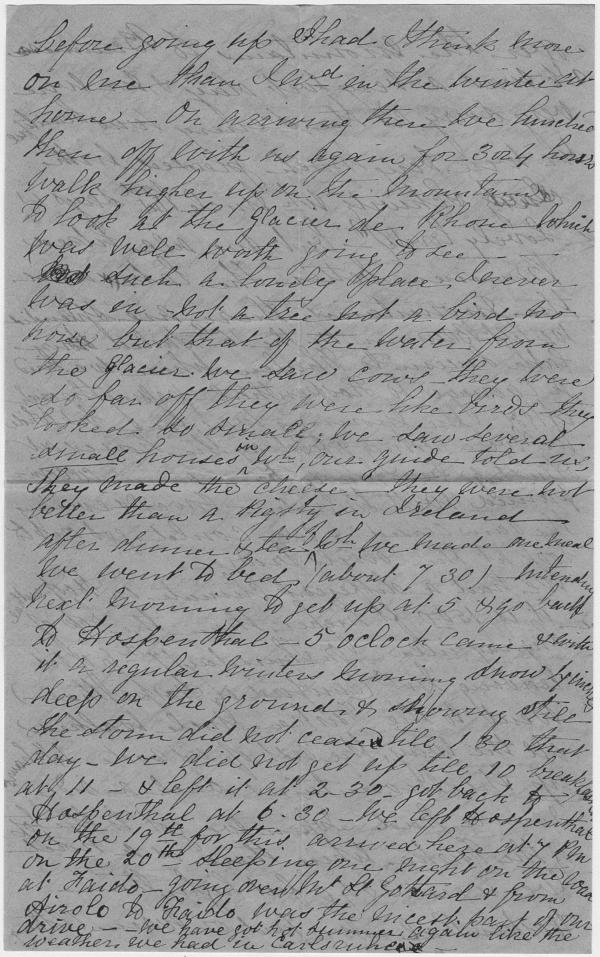 before going up I had I think more
on me than I wd in the winter at
home – On arriving there we lunched
then off with us again for 3 or 4 hours
walk higher up on the Mountains
to look at the Glacier de Rhone which
was well worth going to see – –
such a lonely place I never
was in not a tree not a bird no
noise but that of the water from
the Glacier We saw cows they were
so far off they were like birds they
looked so small; We saw several
small houses in wh, our guide told us,
They made the cheese – they were not
better than a Pigsty in Ireland
after dinner & tea of wh we made one meal
We went to bed (about 7 30) – intending
next morning to get up at 5 & go back
to Hospenthal – 5 oclock came & with
it a regular winters morning snow 4 inches
deep on the ground, & snowing still
the storm did not cease till 1 30 that
day – We did not get up till 10 breakfast
at 11 – & left it at 2–30 – got back to
Hospenthal at 6–30 – We left Hospenthal
on the 19th for this arrived here at 7 PM
on the 20th – sleeping one night on the road
at Faido – going over Mt St Gothard & from
Airolo to Faido was the nicest part of our
drive – – We have got hot summer again like the
weather we had in Carlsrune